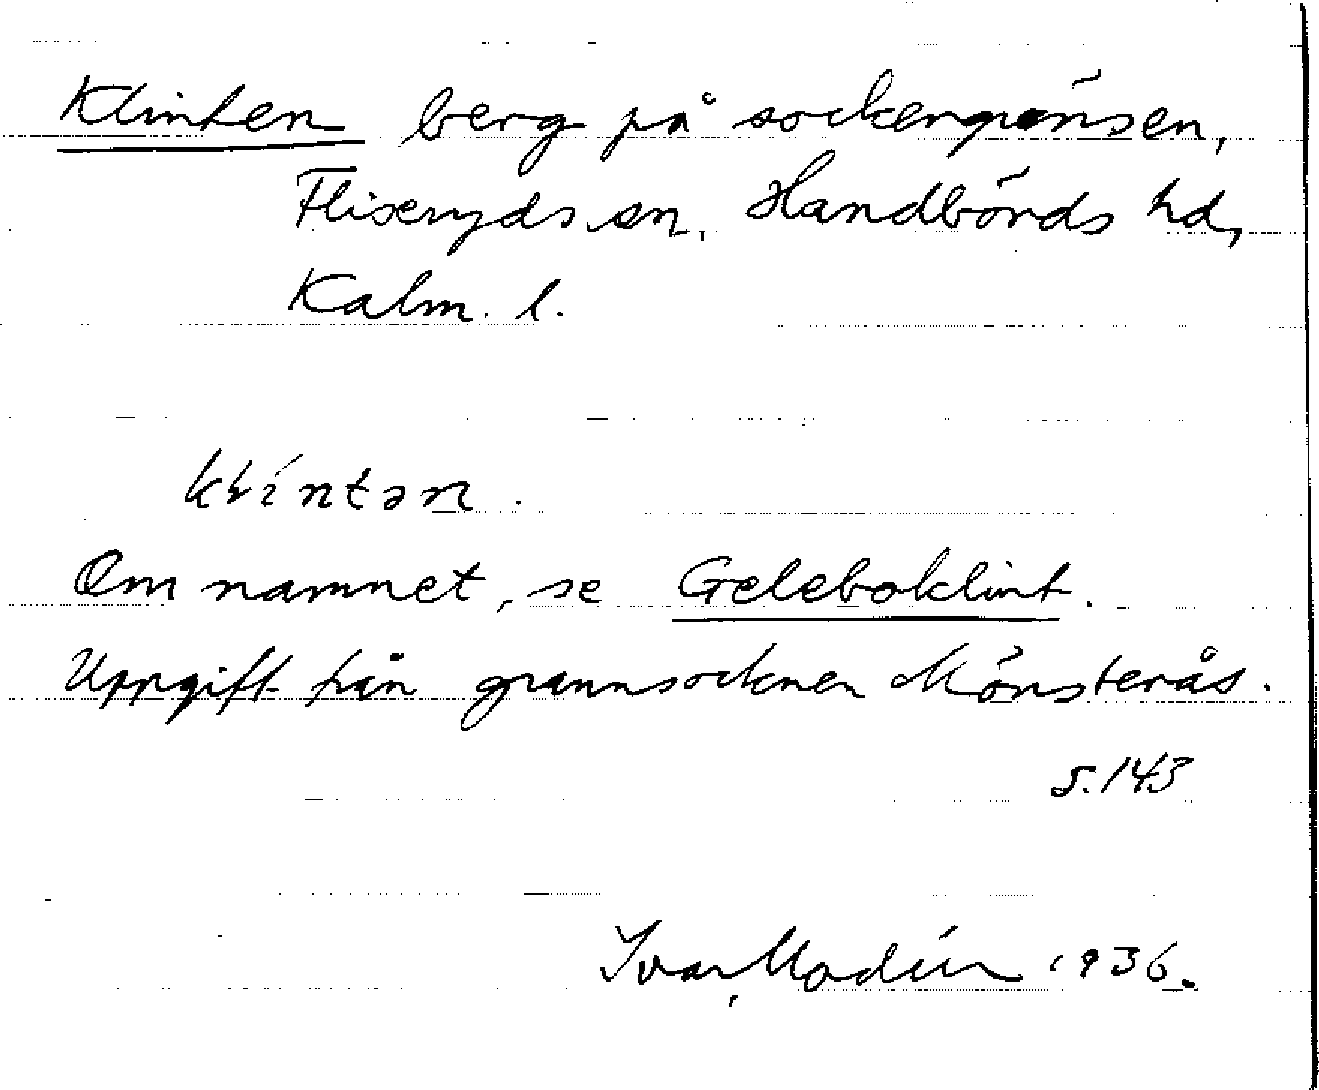 Klinten berg på sockengränsen,
Fliseryds sn, Handbörds hd,
Kalm. l.
klíntən.
Om namnet, se Geleboklint.
Uppgift från grannsocknen Mönsterås.
s. 143
Ivar Modéer 1936.